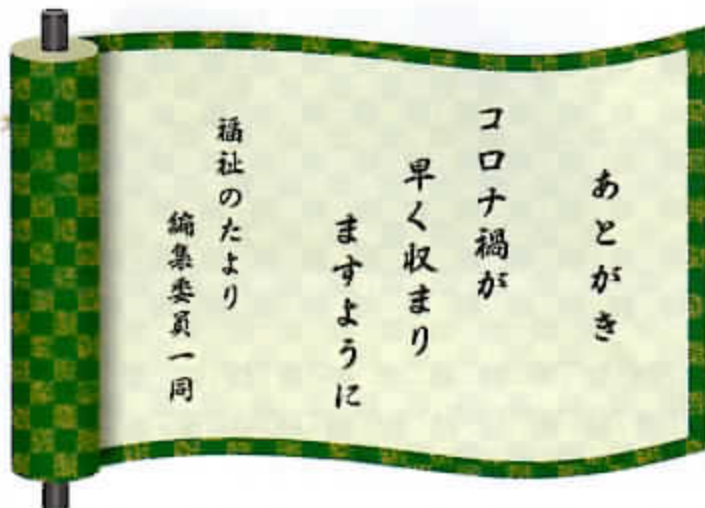 あとがき
コロナ禍が
早く収まり
ますように
福祉のたより
編集委員一同